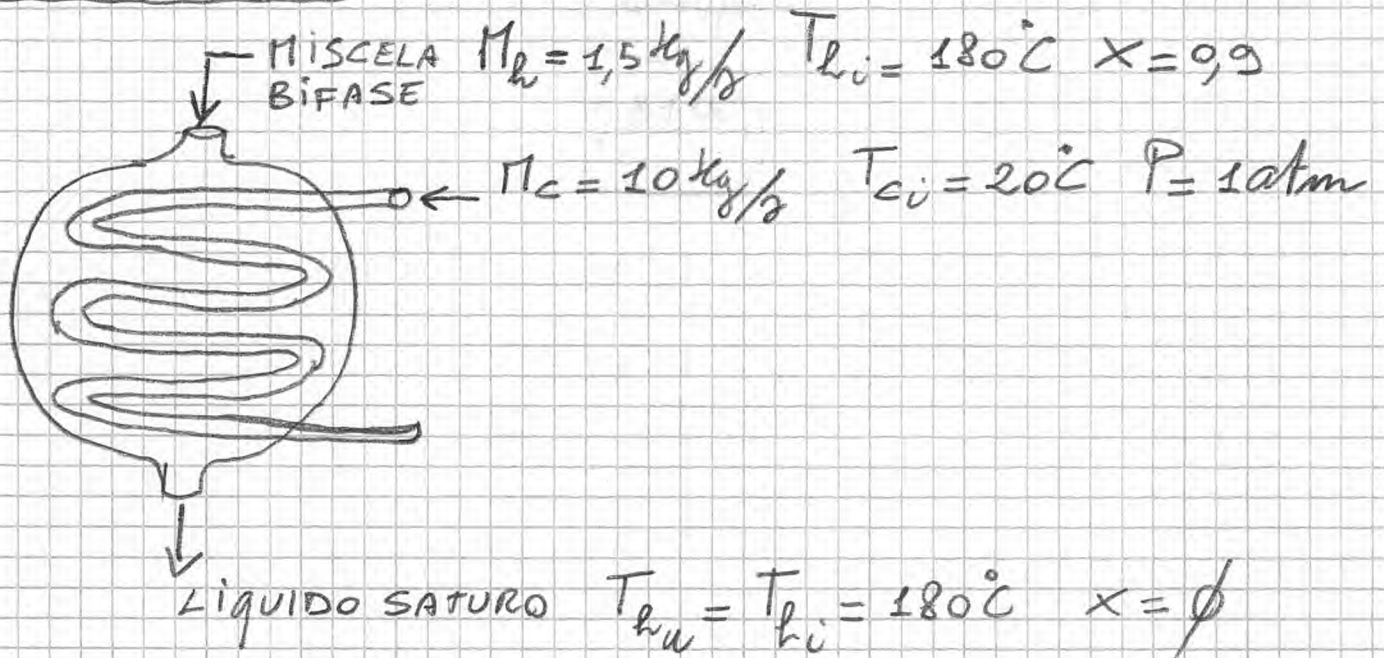 MISCELA Mh = 1,5 kg/s Thi = 180°C x = 0,9
BIFASE
Mc = 10 kg/s Tci = 20°C P = 1 atm
LIQUIDO SATURO Thu = Thi = 180°C x = ∅